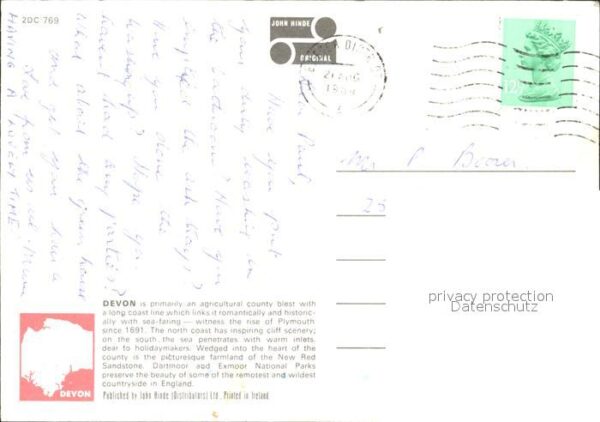 2DC 769
JOHN HINDE
ORIGINAL
21 AUG
12½
Paul,
Have you put
your dirty washing in
the bathroom? Have you
the ash trays?
Have you done the
washing up? Hope you
haven't had any parties!?
What about the green house
and get your hair
love from us all. Mum
HAVING A LOVELY TIME
Mr P
25
privacy protection
Datenschutz
DEVON is primarily an agricultural county blest with
a long coast line which links it romantically and historic-
ally with sea-faring — witness the rise of Plymouth
since 1691. The north coast has inspiring cliff scenery;
on the south the sea penetrates with warm inlets,
dear to holidaymakers. Wedged into the heart of the
county is the picturesque farmland of the New Red
Sandstone. Dartmoor and Exmoor National Parks
preserve the beauty of some of the remotest and wildest
countryside in England.
DEVON
Published by John Hinde (Distributors) Ltd., Printed in Ireland